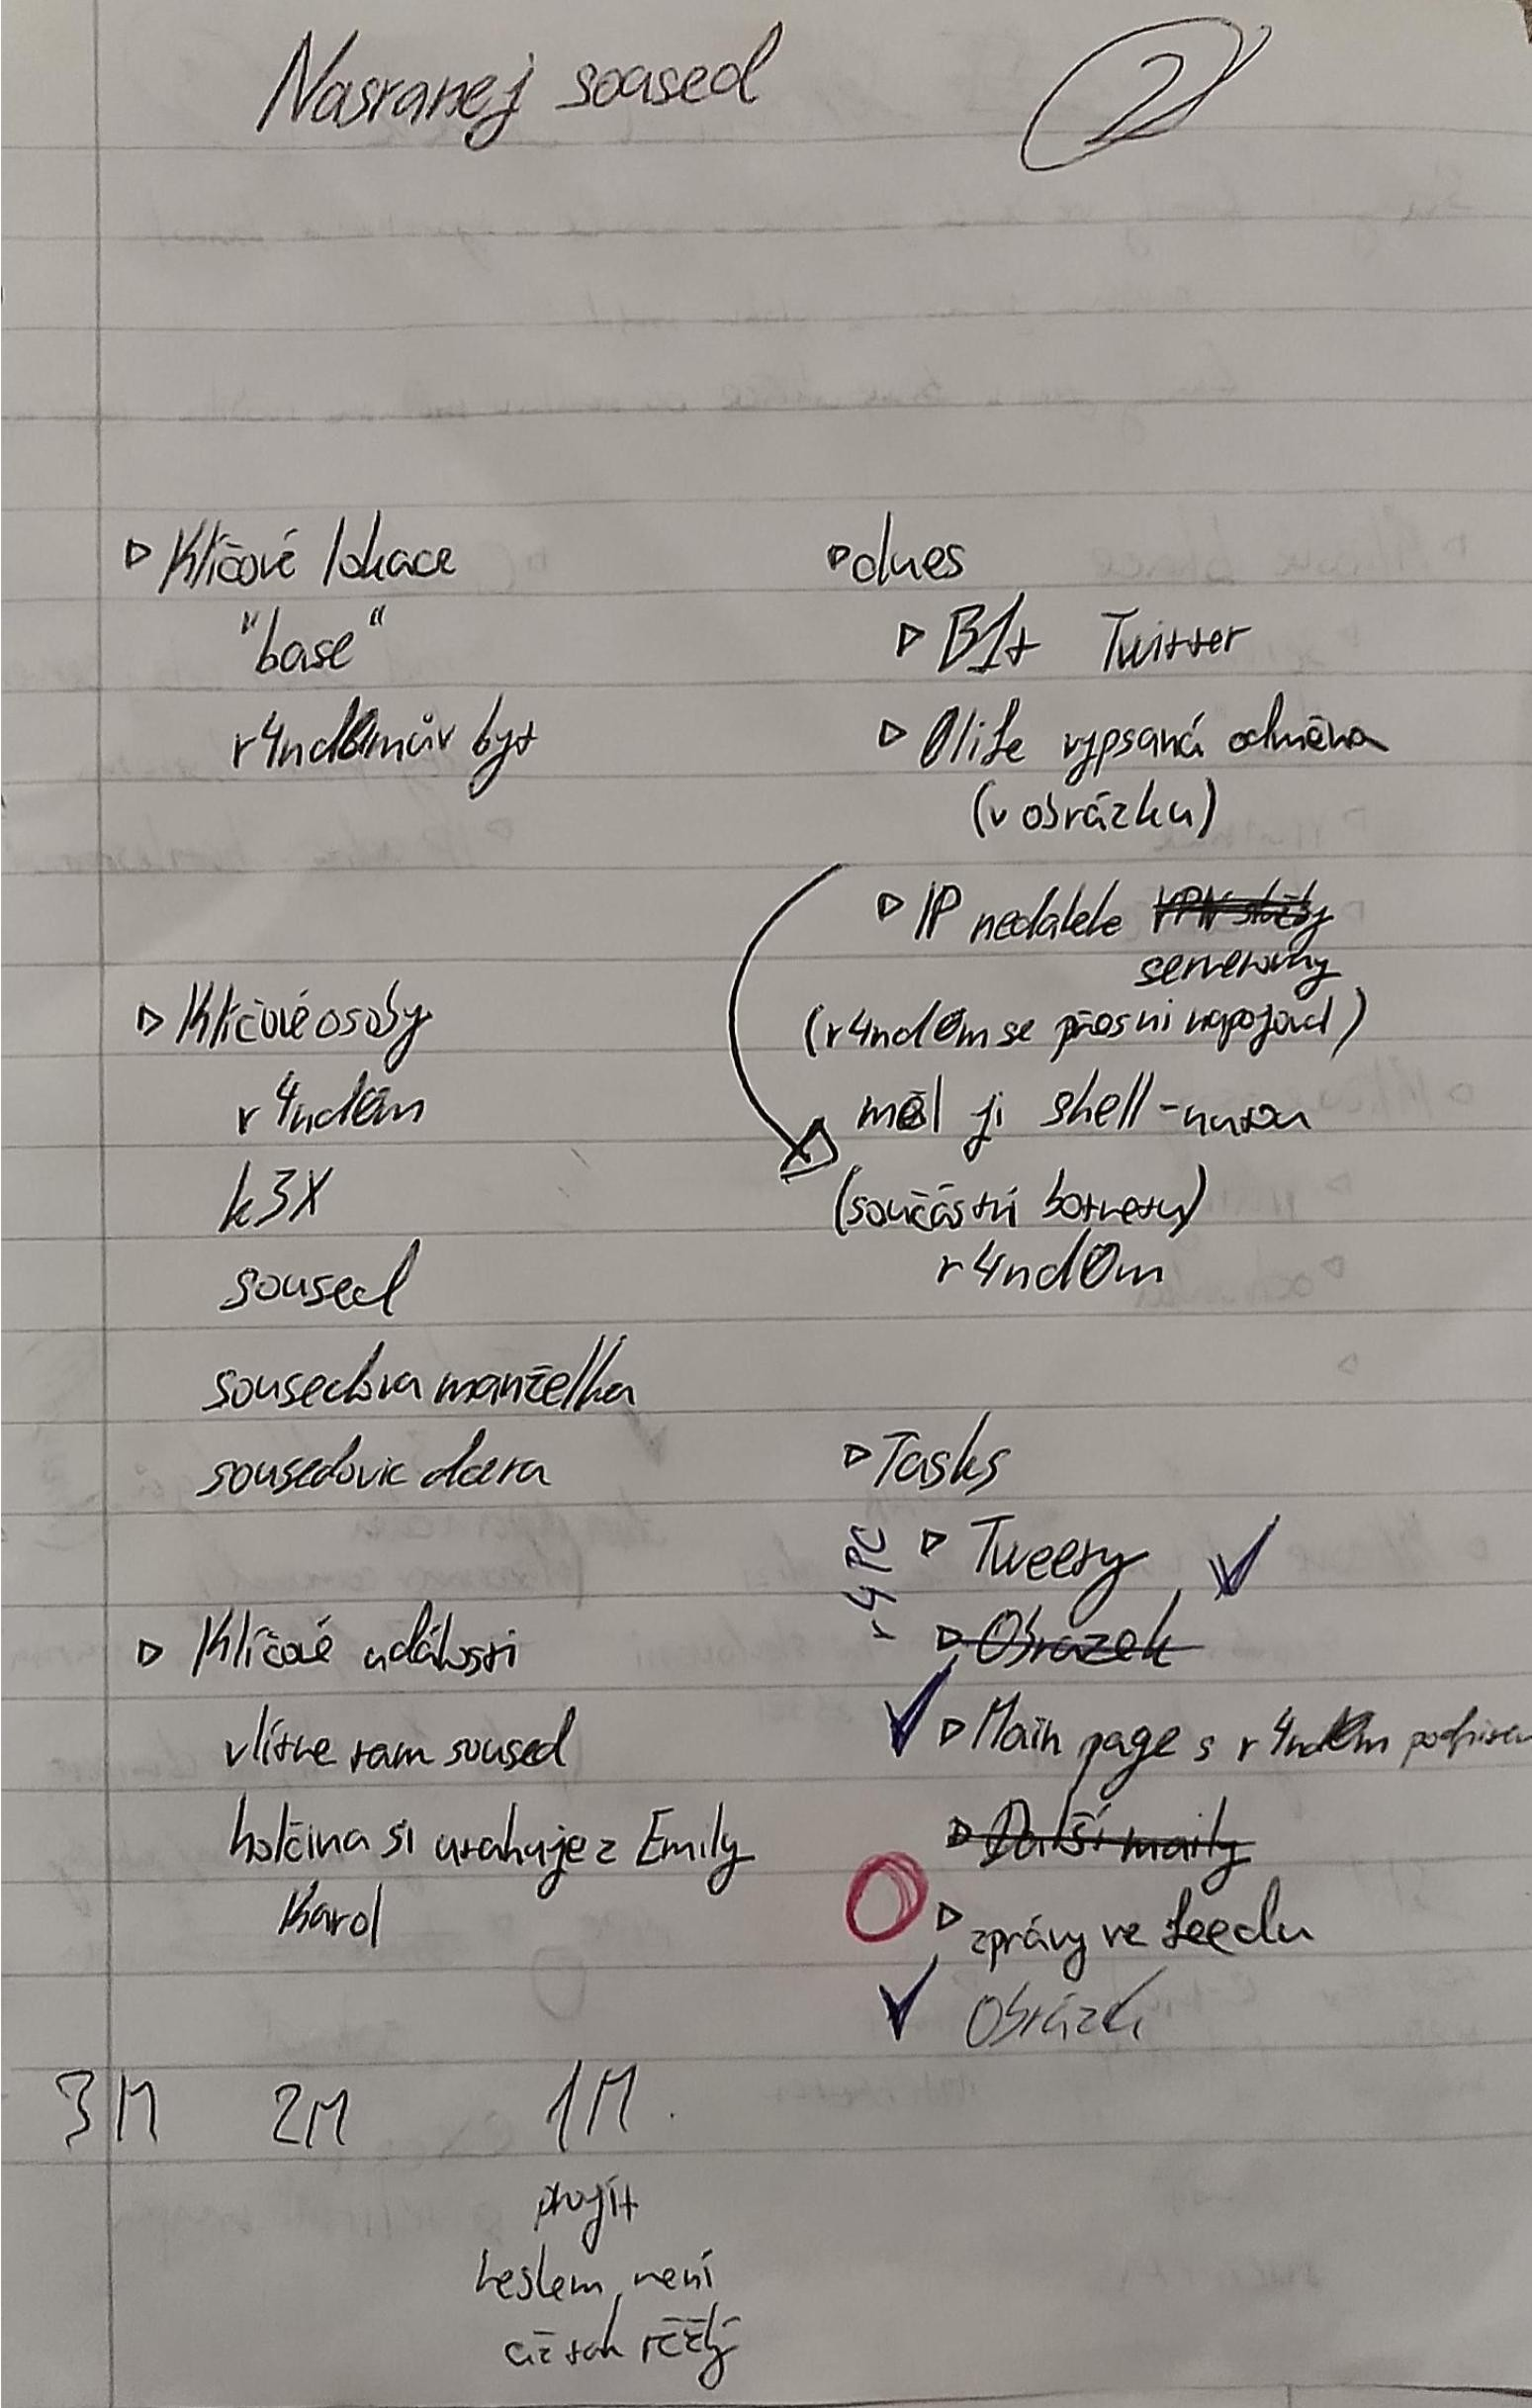 Nasranej soused
2
▷ Klíčové lokace
"base"
r4nd0mův byt
▷ Klíčové osoby
r4nd0m
k3X
soused
sousedova manželka
sousedovic dcera
▷ Klíčové události
vlítne tam soused
holčina si utahuje z Emily
Karol
3M 2M 1M
projít
heslem není
až tak těžký
▷ dnes
▷ B1t Twitter
▷ Olife vypsaná odměna
(v obrázku)
▷ IP nedaleko VPN služby
serverovny
(r4nd0m se přes ni napojoval)
měl ji shell-nutou
(součástí botnetu)
r4nd0m
▷ Tasks
r4 PC
▷ Tweety ✓
▷ Obrázek
✓ ▷ Main page s r4nd0m
▷ Další maily
▷ zprávy ve feedu
✓ Obrázek